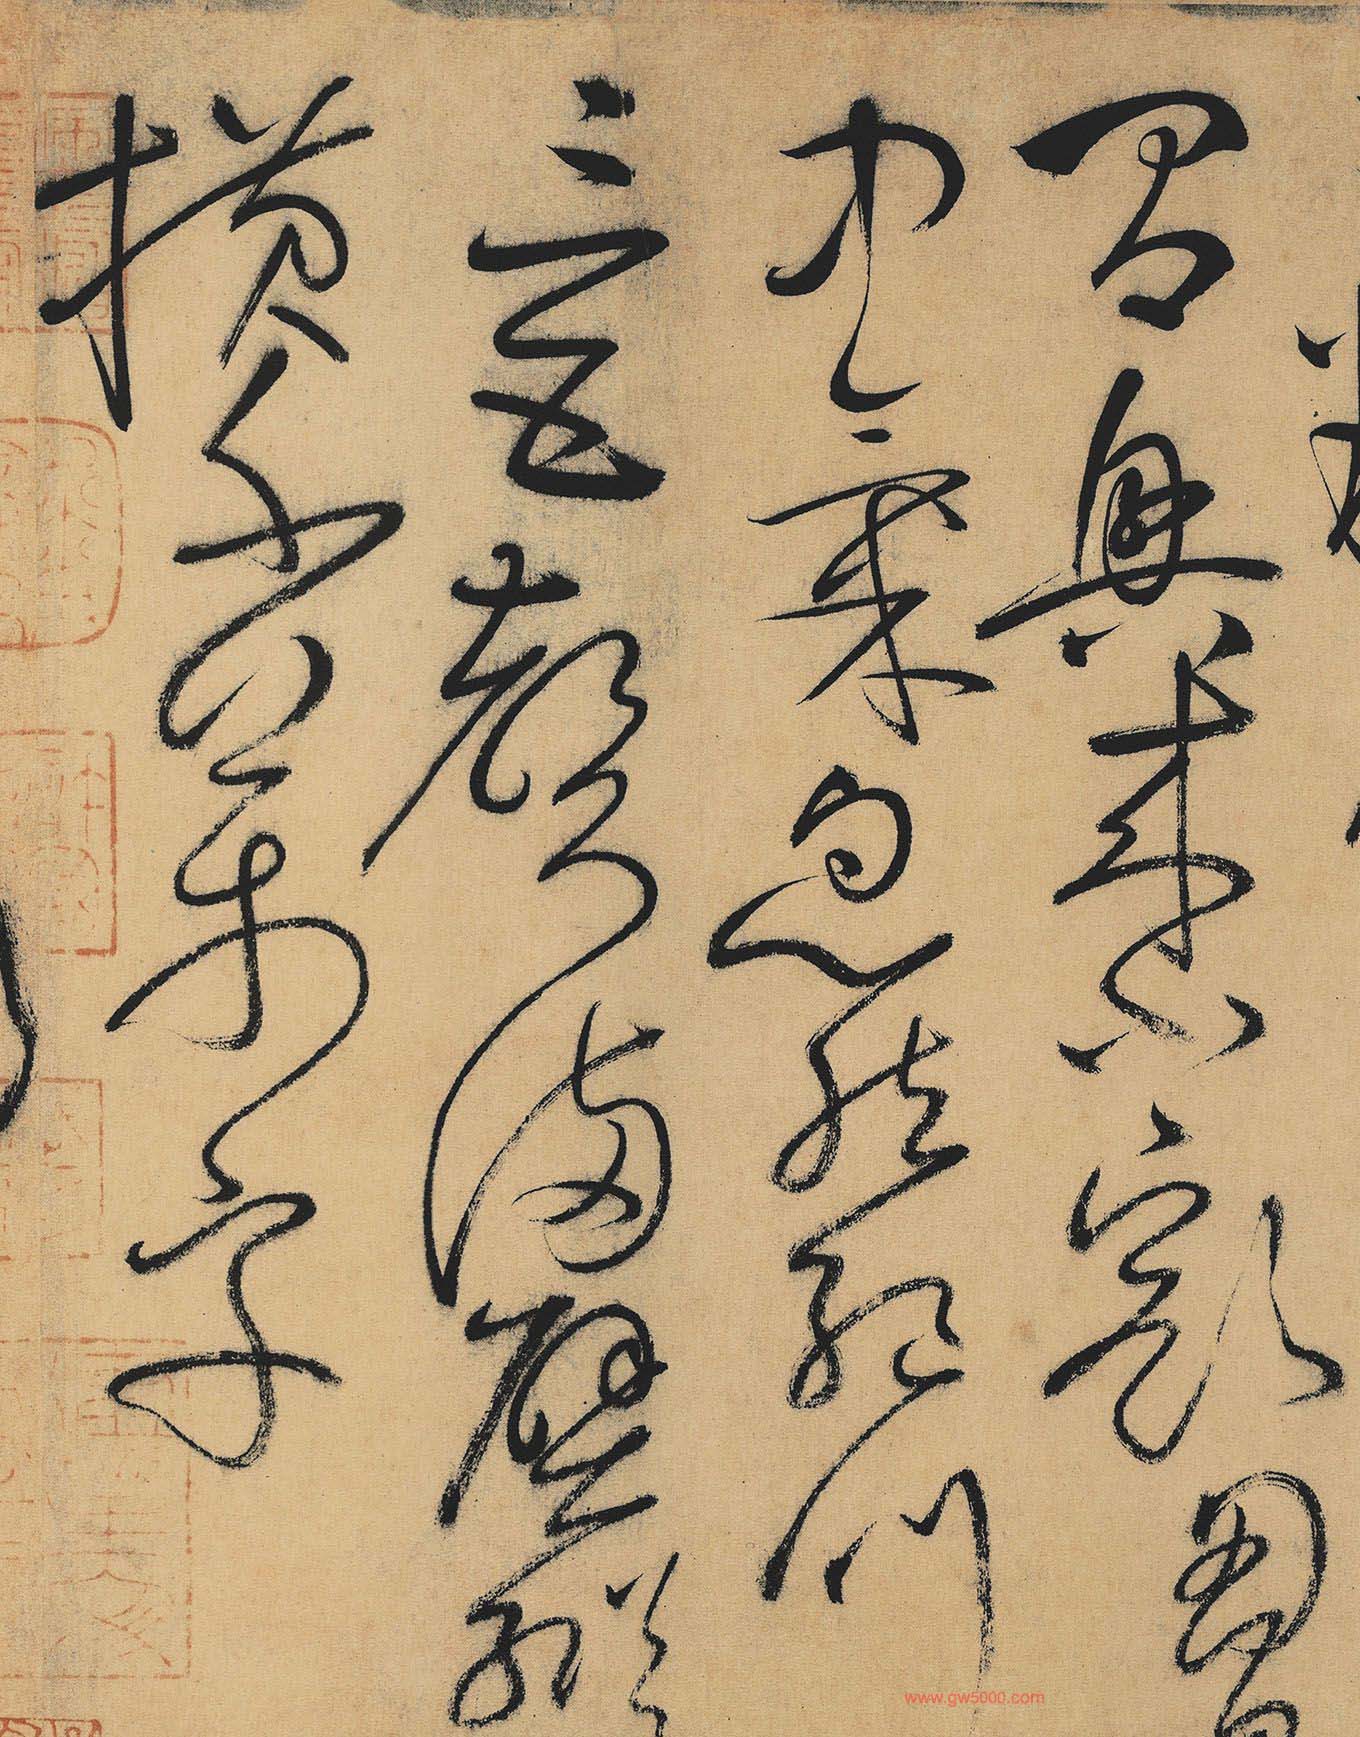 間興來小豁胷
中氣忽然絕叫
三五聲滿壁縱
橫千萬字
www.gw5000.com